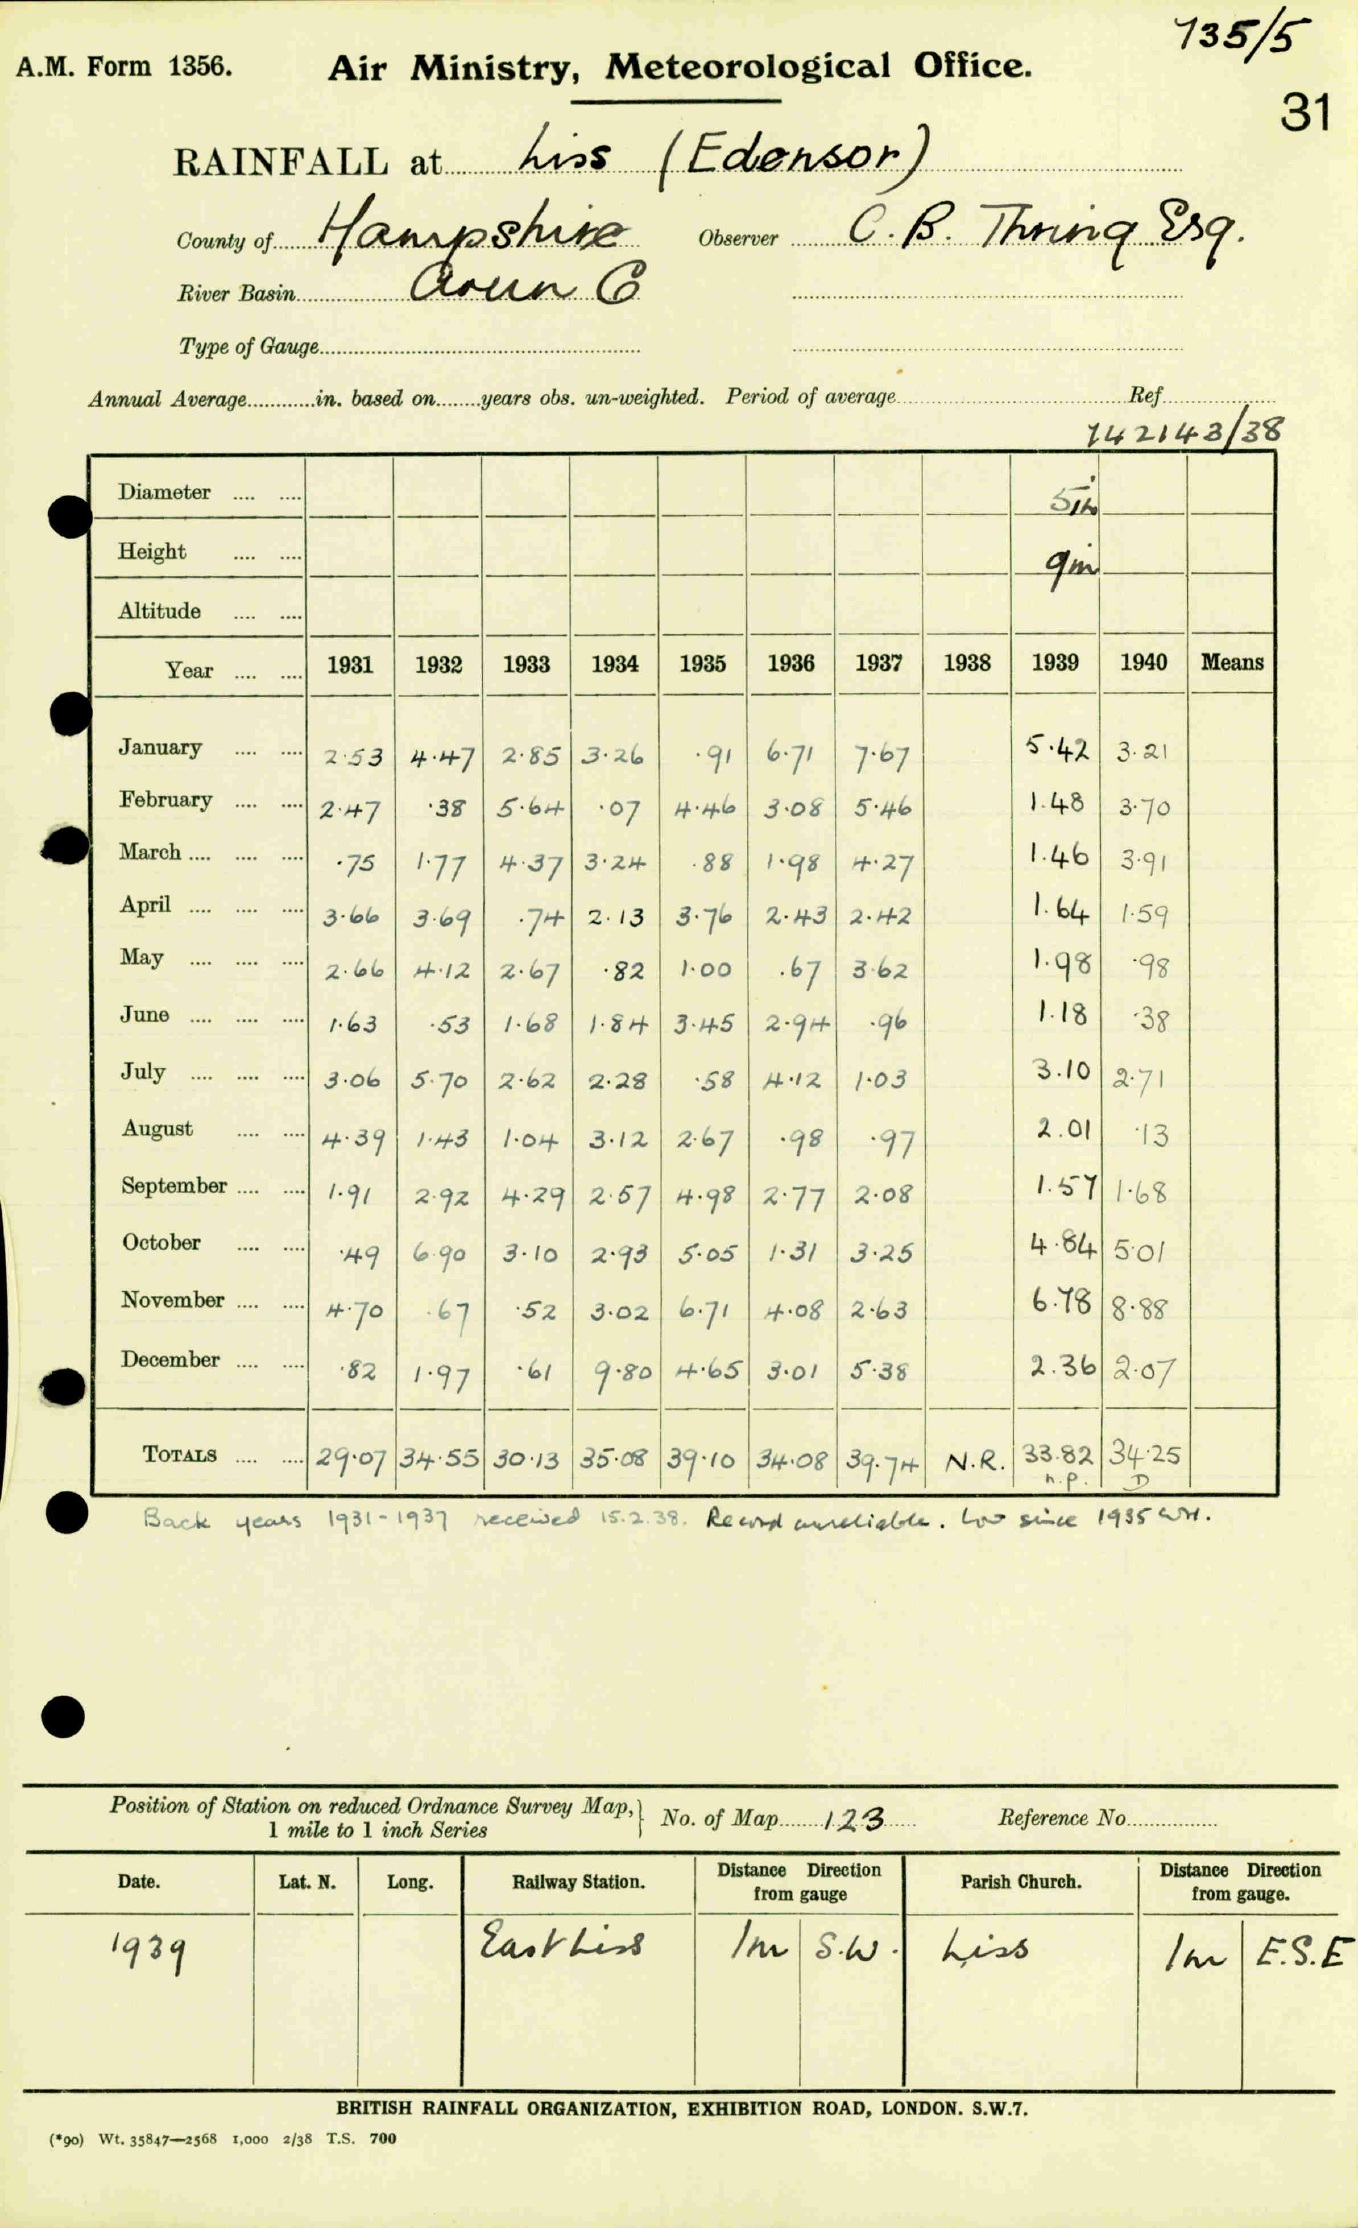 735/5
A.M. Form 1356. Air Ministry, Meteorological Office.
31
RAINFALL at Liss (Edensor)
County of Hampshire Observer C. B. Thring Esq.
River Basin Arun C
Type of Gauge
Annual Average in. based on years obs. un-weighted. Period of average Ref
742143/38
Diameter 5in
Height 9in
Altitude
Year 1931 1932 1933 1934 1935 1936 1937 1938 1939 1940 Means
January 2.53 4.47 2.85 3.26 .91 6.71 7.67 5.42 3.21
February 2.47 .38 5.64 .07 4.46 3.08 5.46 1.48 3.70
March .75 1.77 4.37 3.24 .88 1.98 4.27 1.46 3.91
April 3.66 3.69 .74 2.13 3.76 2.43 2.42 1.64 1.59
May 2.66 4.12 2.67 .82 1.00 .67 3.62 1.98 .98
June 1.63 .53 1.68 1.84 3.45 2.94 .96 1.18 .38
July 3.06 5.70 2.62 2.28 .58 4.12 1.03 3.10 2.71
August 4.39 1.43 1.04 3.12 2.67 .98 .97 2.01 .13
September 1.91 2.92 4.29 2.57 4.98 2.77 2.08 1.57 1.68
October .49 6.90 3.10 2.93 5.05 1.31 3.25 4.84 5.01
November 4.70 .67 .52 3.02 6.71 4.08 2.63 6.78 8.88
December .82 1.97 .61 9.80 4.65 3.01 5.38 2.36 2.07
TOTALS 29.07 34.55 30.13 35.08 39.10 34.08 39.74 N.R. 33.82 34.25
n.p. D
Back years 1931-1937 received 15.2.38. Record unreliable. Low since 1935
Position of Station on reduced Ordnance Survey Map, No. of Map 123 Reference No
1 mile to 1 inch Series
Date. Lat. N. Long. Railway Station. Distance Direction from gauge Parish Church. Distance Direction from gauge.
1939 East Liss 1m S.W. Liss 1m E.S.E
BRITISH RAINFALL ORGANIZATION, EXHIBITION ROAD, LONDON. S.W.7.
(*90) Wt. 35847—2568 1,000 2/38 T.S. 700